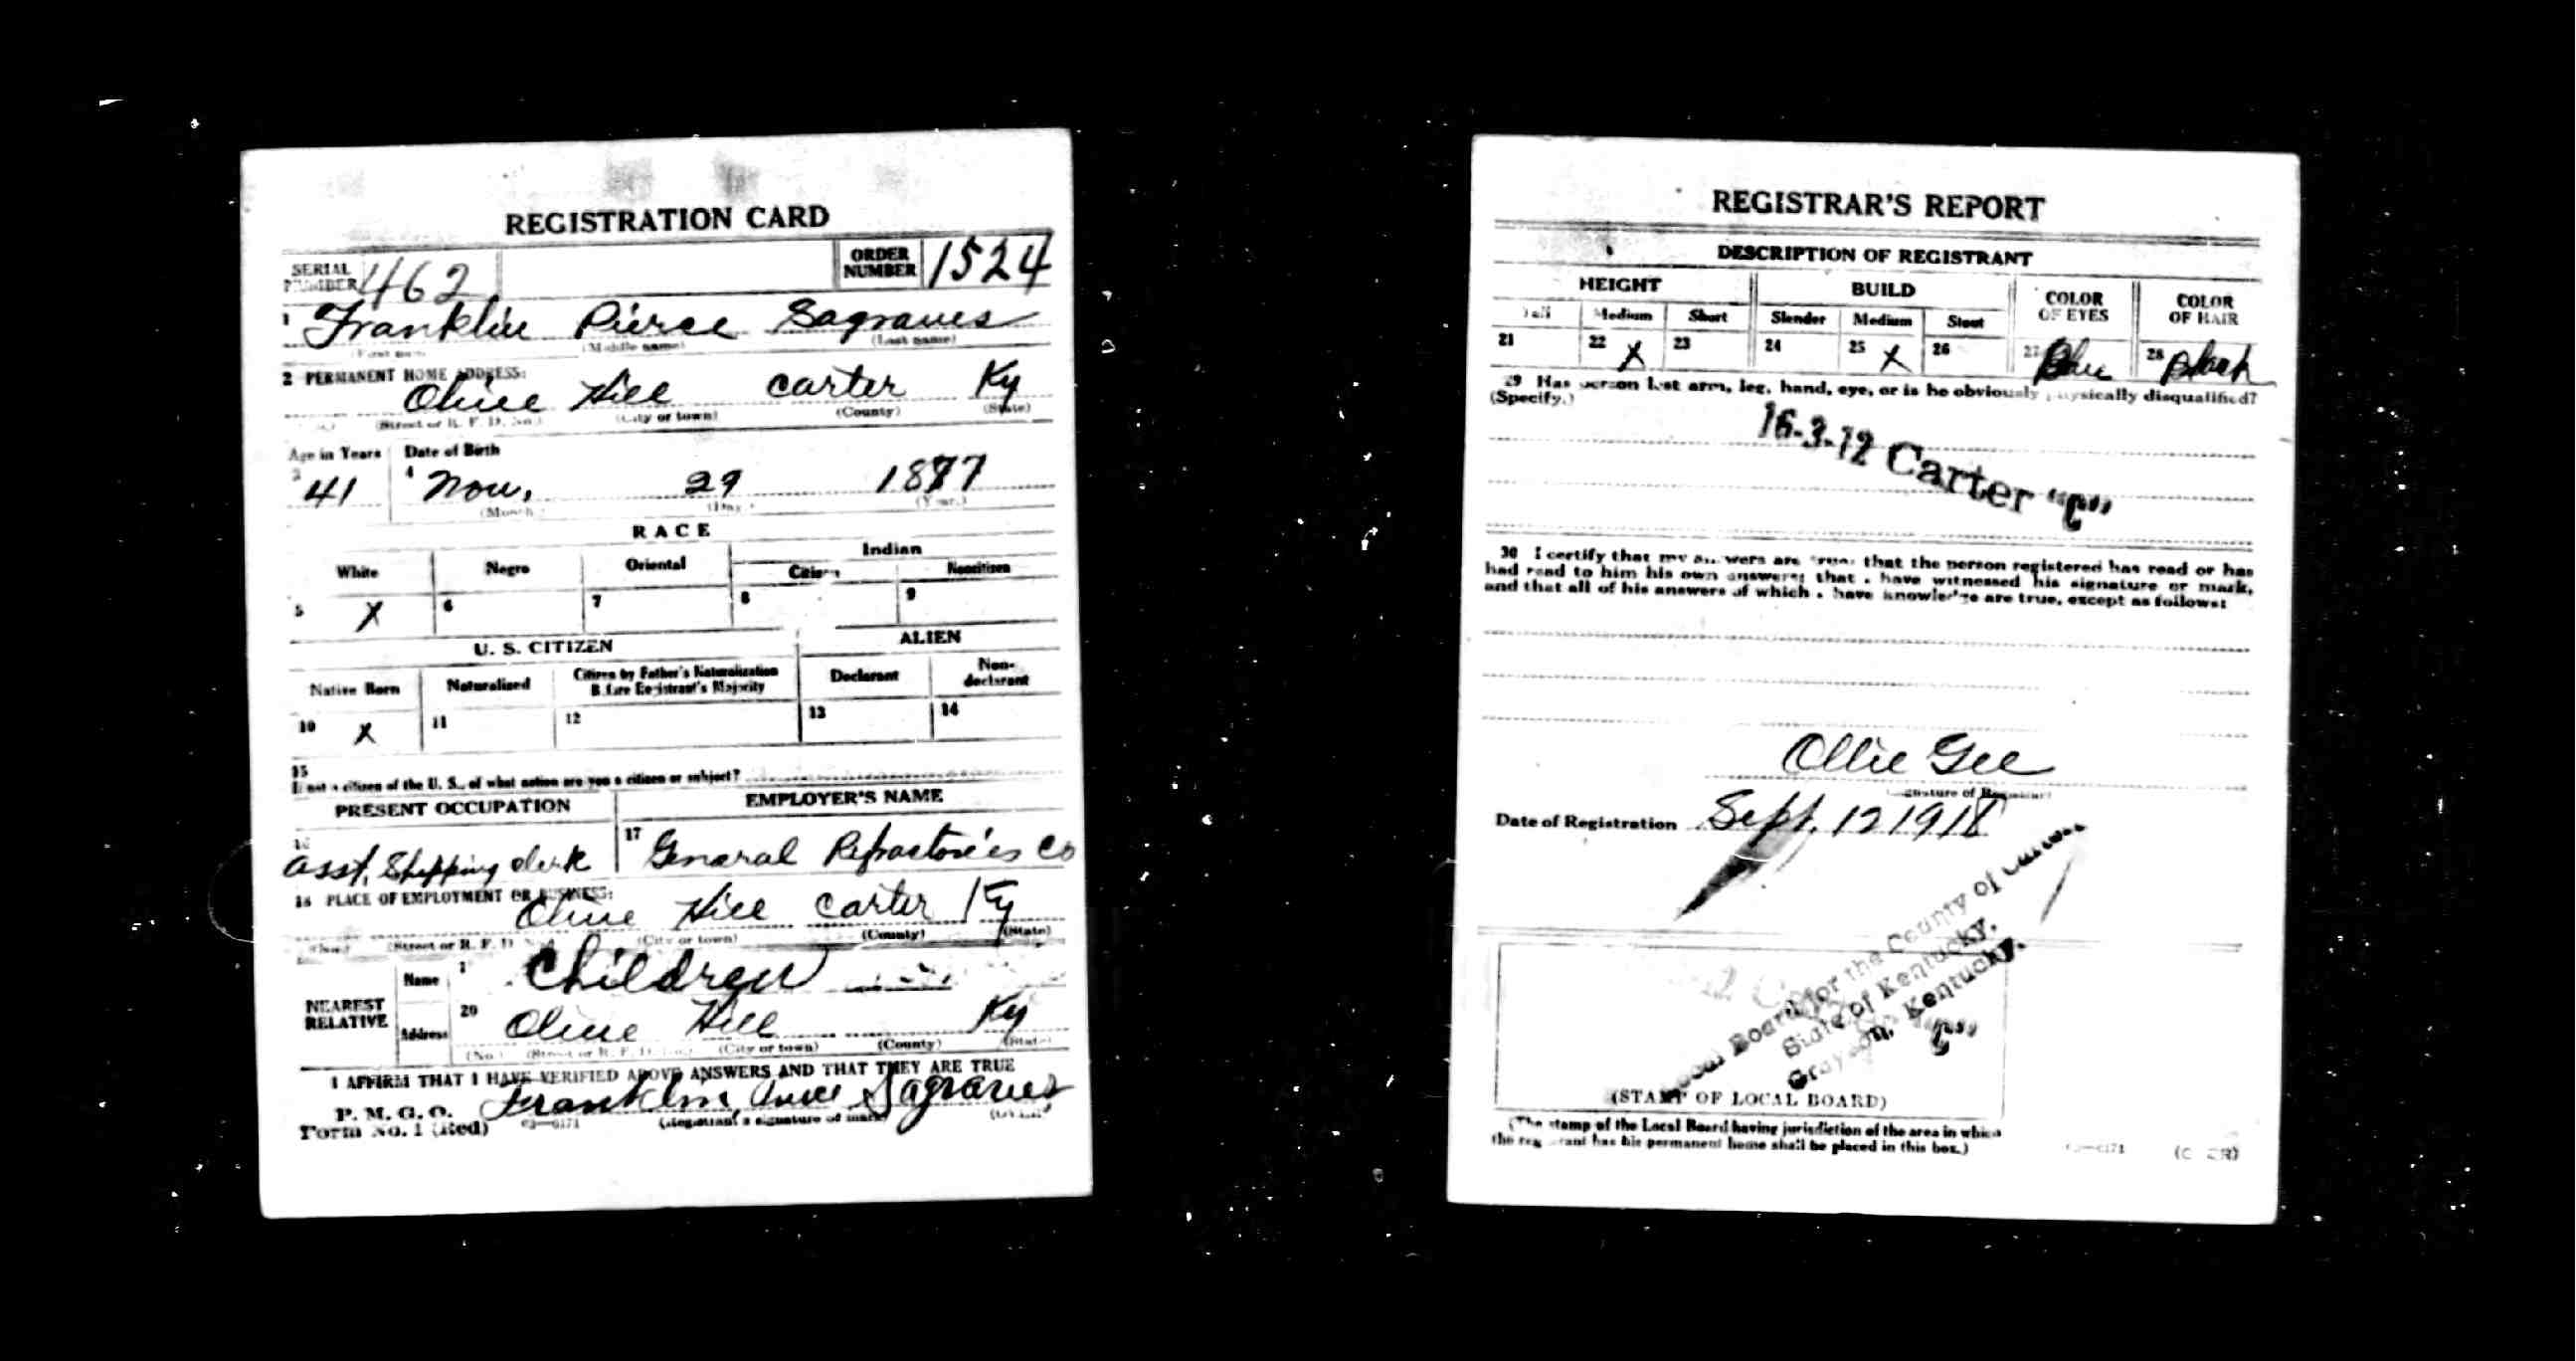 REGISTRATION CARD
SERIAL NUMBER 462 ORDER NUMBER 1524
1 Franklin Pierce Sagraves
(First name) (Middle name) (Last name)
2 PERMANENT HOME ADDRESS:
Olive Hill Carter Ky
(Street or R. F. D. No.) (City or town) (County) (State)
Age in Years Date of Birth
3 41 4 Nov. 29 1877
(Month) (Day) (Year.)
RACE
White Negro Oriental Indian
Citizen Noncitizen
5 X 6 7 8 9
U. S. CITIZEN ALIEN
Native Born Naturalized Citizen by Father's Naturalization Before Registrant's Majority Declarant Non-declarant
10 X 11 12 13 14
15
If not a citizen of the U. S., of what nation are you a citizen or subject?
PRESENT OCCUPATION EMPLOYER'S NAME
16 Asst. Shipping Clerk 17 General Refractories Co
18 PLACE OF EMPLOYMENT OR BUSINESS:
Olive Hill Carter Ky
(Street or R. F. D. (City or town) (County) (State)
NEAREST RELATIVE
Name Children
Address 20 Olive Hill Ky
(No.) (Street or R. F. D. No.) (City or town) (County) (State)
I AFFIRM THAT I HAVE VERIFIED ABOVE ANSWERS AND THAT THEY ARE TRUE
P. M. G. O.
Form No. 1 (Red) Franklin Sagraves
(Registrant's signature or mark) (OVER)
REGISTRAR'S REPORT
DESCRIPTION OF REGISTRANT
HEIGHT BUILD COLOR OF EYES COLOR OF HAIR
Tall Medium Short Slender Medium Stout
21 22 X 23 24 25 X 26 27 Blue 28 Black
29 Has person lost arm, leg, hand, eye, or is he obviously physically disqualified?
(Specify.)
16-3-12 Carter "C"
30 I certify that my answers are true; that the person registered has read or has
had read to him his own answers; that I have witnessed his signature or mark,
and that all of his answers of which I have knowledge are true, except as follows:
Ollie Gee
(Signature of Registrar)
Date of Registration Sept. 12 1918
Local Board for the County of Carter,
State of Kentucky,
Grayson, Kentucky.
"C"
(STAMP OF LOCAL BOARD)
(The stamp of the Local Board having jurisdiction of the area in which
the registrant has his permanent home shall be placed in this box.)
(OVER)